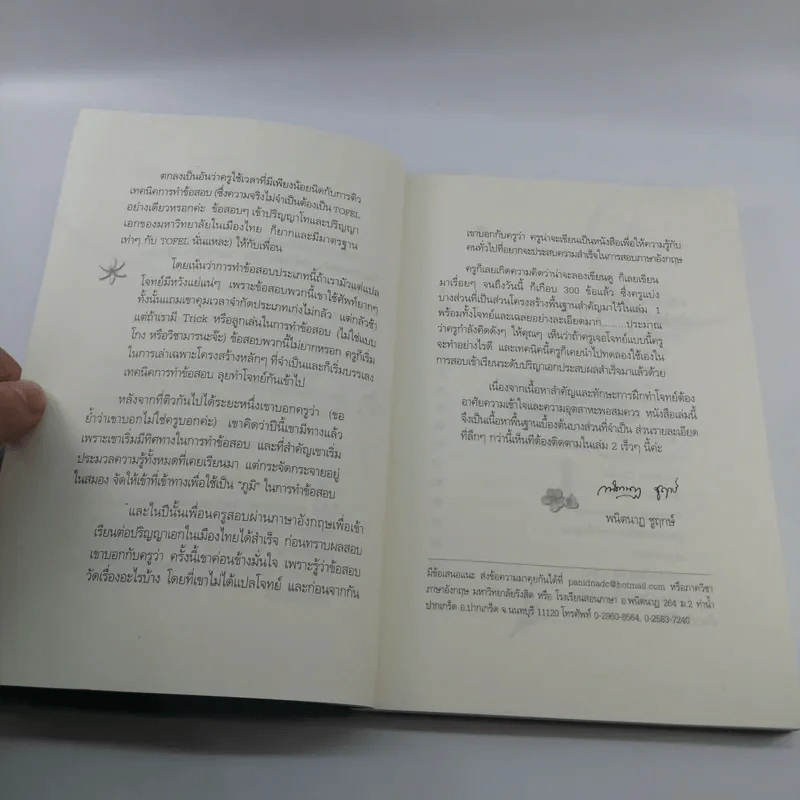 ตกลงเป็นอันว่าครูใช้เวลาที่มีเพียงน้อยนิดกับการติว
เทคนิคการทำข้อสอบ (ซึ่งความจริงไม่จำเป็นต้องเป็น TOFEL
อย่างเดียวหรอกค่ะ ข้อสอบๆ เข้าปริญญาโทและปริญญา
เอกของมหาวิทยาลัยในเมืองไทย ก็ยากและมีมาตรฐาน
เท่าๆ กับ TOFEL นั่นแหละ) ให้กับเพื่อน
โดยเน้นว่าการทำข้อสอบประเภทนี้ถ้าเรามัวแต่แปล
โจทย์มีหวังแย่แน่ๆ เพราะข้อสอบพวกนี้เขาใช้ศัพท์ยากๆ
ทั้งนั้นแถมเขาคุมเวลาจำกัดประเภทเก่งไม่กลัว แต่กลัวช้า
แต่ถ้าเรามี Trick หรือลูกเล่นในการทำข้อสอบ (ไม่ใช่แบบ
โกง หรือวิชามารนะจ๊ะ) ข้อสอบพวกนี้ไม่ยากหรอก ครูก็เริ่ม
ในการเล่าเฉพาะโครงสร้างหลักๆ ที่จำเป็นและก็เริ่มบรรเลง
เทคนิคการทำข้อสอบ ลุยทำโจทย์กันเข้าไป
หลังจากที่ติวกันไปได้ระยะหนึ่งเขาบอกครูว่า (ขอ
ย้ำว่าเขาบอกไม่ใช่ครูบอกค่ะ) เขาคิดว่าปีนี้เขามีทางแล้ว
เพราะเขาเริ่มมีทิศทางในการทำข้อสอบ และที่สำคัญเขาเริ่ม
ประมวลความรู้ทั้งหมดที่เคยเรียนมา แต่กระจัดกระจายอยู่
ในสมอง จัดให้เข้าที่เข้าทางเพื่อใช้เป็น "ภูมิ" ในการทำข้อสอบ
และในปีนั้นเพื่อนครูสอบผ่านภาษาอังกฤษเพื่อเข้า
เรียนต่อปริญญาเอกในเมืองไทยได้สำเร็จ ก่อนทราบผลสอบ
เขาบอกกับครูว่า ครั้งนี้เขาค่อนข้างมั่นใจ เพราะรู้ว่าข้อสอบ
วัดเรื่องอะไรบ้าง โดยที่เขาไม่ได้แปลโจทย์ และก่อนจากกัน
เขาบอกกับครูว่า ครูน่าจะเขียนเป็นหนังสือเพื่อให้ความรู้กับ
คนทั่วไปที่อยากจะประสบความสำเร็จในการสอบภาษาอังกฤษ
ครูก็เลยเกิดความคิดว่าน่าจะลองเขียนดู ก็เลยเขียน
มาเรื่อยๆ จนถึงวันนี้ ก็เกือบ 300 ข้อแล้ว ซึ่งครูแบ่ง
บางส่วนที่เป็นส่วนโครงสร้างพื้นฐานสำคัญมาไว้ในเล่ม 1
พร้อมทั้งโจทย์และเฉลยอย่างละเอียดมาก........ประมาณ
ว่าครูกำลังคิดดังๆ ให้คุณๆ เห็นว่าถ้าครูเจอโจทย์แบบนี้ครู
จะทำอย่างไรดี และเทคนิคนี้ครูก็เคยนำไปทดลองใช้เองใน
การสอบเข้าเรียนระดับปริญญาเอกประสบผลสำเร็จมาแล้วด้วย
เนื่องจากเนื้อหาสำคัญและทักษะการฝึกทำโจทย์ต้อง
อาศัยความเข้าใจและความอุตสาหะพอสมควร หนังสือเล่มนี้
จึงเป็นเนื้อหาพื้นฐานเบื้องต้นบางส่วนที่จำเป็น ส่วนรายละเอียด
ที่ลึกๆ กว่านี้เห็นทีต้องติดตามในเล่ม 2 เร็วๆ นี้ค่ะ
พนิตนาฏ ชูฤกษ์
พนิตนาฏ ชูฤกษ์
มีข้อเสนอแนะ ส่งข้อความมาคุยกันได้ที่ panidnadc@hotmail.com หรือภาควิชา
ภาษาอังกฤษ มหาวิทยาลัยรังสิต หรือ โรงเรียนสอนภาษา อ.พนิตนาฏ 264 ม.2 ท่าน้ำ
ปากเกร็ด อ.ปากเกร็ด จ.นนทบุรี 11120 โทรศัพท์ 0-2960-8564, 0-2583-7240